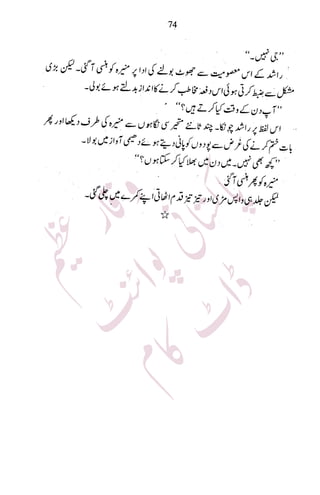 74
’’جی نہیں۔‘‘
راشد کے اس معصومیت سے جھوٹ بولنے کی ادا پر منیرہ کو ہنسی آ گئی۔ لیکن بڑی
مشکل سے ضبط کرتی ہوئی اس دفعہ مخاطب کرنے کا انداز بدلتے ہوئے بولی۔
’’آپ دن کے وقت کیا کرتے ہیں؟‘‘
اس لفظ پر راشد چونکا۔ چند ثانئے متحیر سی نگاہوں سے منیرہ کی طرف دیکھا اور پھر
بات ختم کرنے کی غرض سے پودوں کو پانی دیتے ہوئے دھیمی آواز میں بولا۔
’’کچھ بھی نہیں۔ میں دن میں بھلا کیا کر سکتا ہوں؟‘‘
منیرہ کو پھر ہنسی آ گئی
لیکن جلد ہی واپس مڑی اور تیز تیز قدم اٹھاتی اپنے کمرے میں چلی گئی۔
☆
وقار عظیم
پاکستانی پوائنٹ
ڈاٹ کام